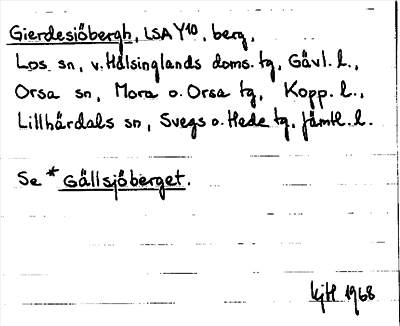 Gierdesjöbergh, LSA Y10, berg,
Los sn, v. Hälsinglands doms. tg, Gävl. l.,
Orsa sn, Mora o. Orsa tg, Kopp. l.,
Lillhärdals sn, Svegs o. Hede tg, Jämtl. l.
Se * Gällsjöberget.
1968